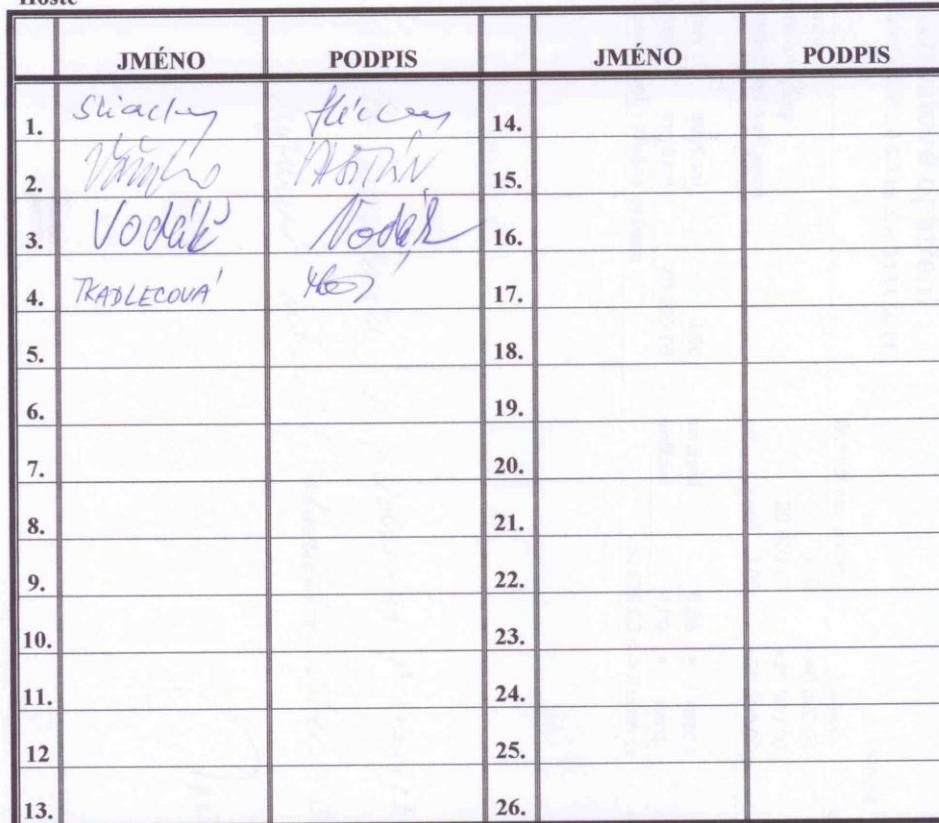 Hosté
JMÉNO PODPIS JMÉNO PODPIS
1. 14.
2. 15.
3. Vodák Vodák 16.
4. TKADLECOVÁ 17.
5. 18.
6. 19.
7. 20.
8. 21.
9. 22.
10. 23.
11. 24.
12 25.
13. 26.